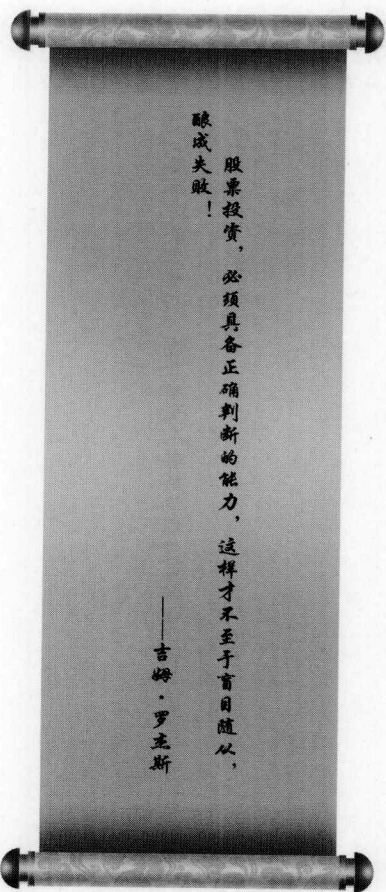 股票投资，必须具备正确判断的能力，这样才不至于盲目随从，
酿成失败！
——吉姆·罗杰斯